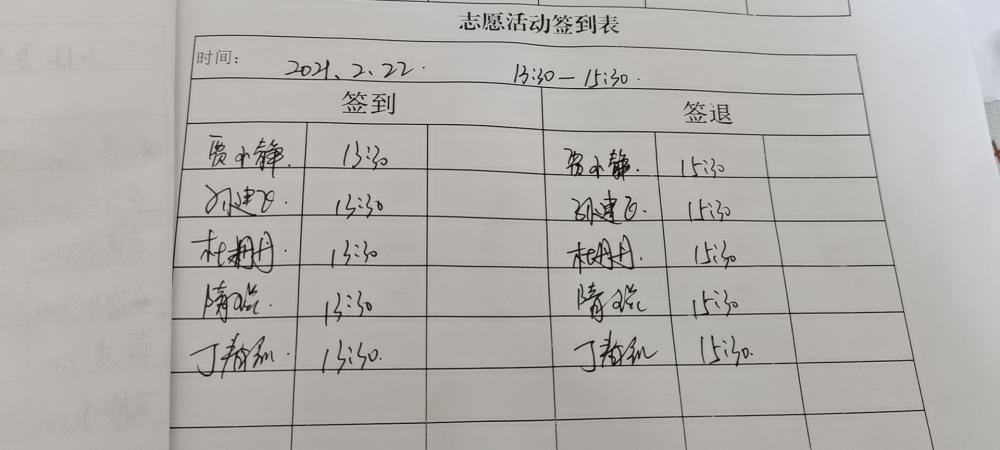 志愿活动签到表
时间: 2021.2.22. 13:30—15:30.
签到 签退
贾小静. 13:30 贾小静. 15:30
孙建飞. 13:30 孙建飞. 15:30
杜丹丹. 13:30 杜丹丹. 15:30
隋 13:30 隋 15:30
丁 13:30. 丁 15:30.